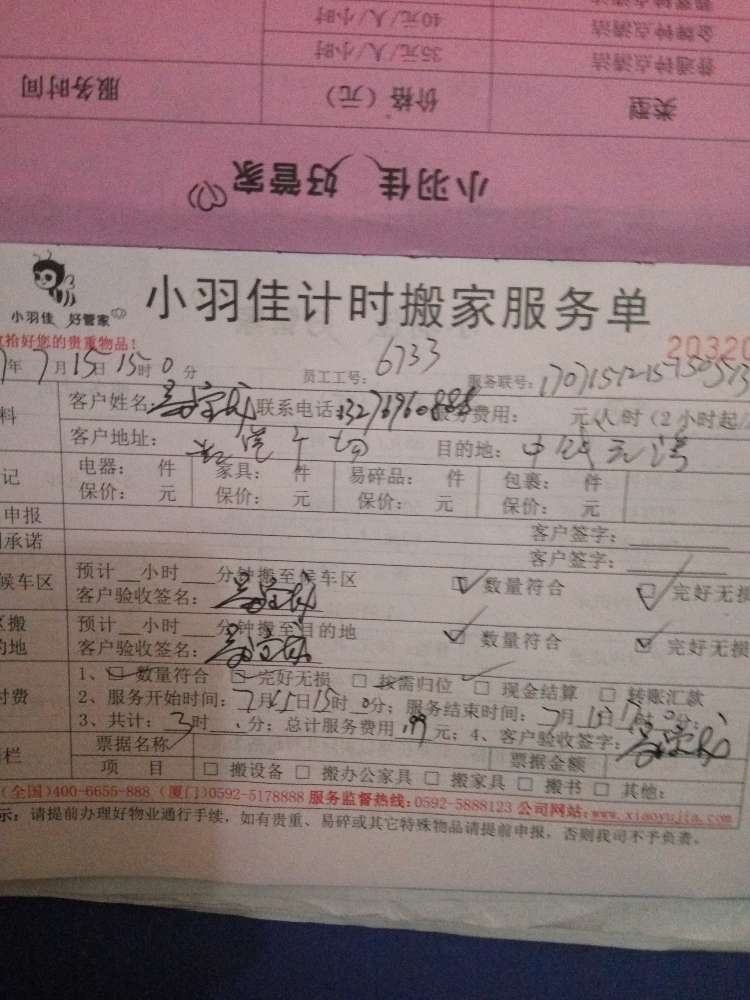 普通钟点清洁 35元/人/小时
金牌钟点清洁 40元/人/小时
类型 价格（元） 服务时间
小羽佳 好管家
小羽佳 好管家
小羽佳计时搬家服务单
拾好您的贵重物品！
20320
年7月15日15时0分 员工工号：6733 服务联号：
料 客户姓名： 联系电话： 服务费用： 元/人/时（2小时起/
客户地址： 目的地：
记 电器： 件 家具： 件 易碎品： 件 包裹： 件
保价： 元 保价： 元 保价： 元 保价： 元
申报 客户签字：
承诺 客户签字：
候车区 预计__小时__分钟搬至候车区 ☑数量符合 ☑完好无损
客户验收签名：
搬 预计__小时__分钟搬至目的地 ☑数量符合 ☑完好无损
的地 客户验收签名：
付费 1、☑数量符合 ☑完好无损 □按需归位 □现金结算 □转账汇款
2、服务开始时间：7月15日15时0分；服务结束时间：7月15日 时0分；
3、共计：3时 分；总计服务费用 元；4、客户验收签字：
栏 票据名称 票据金额
项 目 □搬设备 □搬办公家具 □搬家具 □搬书 □其他：
(全国)400-6655-888 (厦门)0592-5178888 服务监督热线:0592-5888123 公司网站:www.xiaoyujia.com
示：请提前办理好物业通行手续，如有贵重、易碎或其它特殊物品请提前申报，否则我司不予负责。